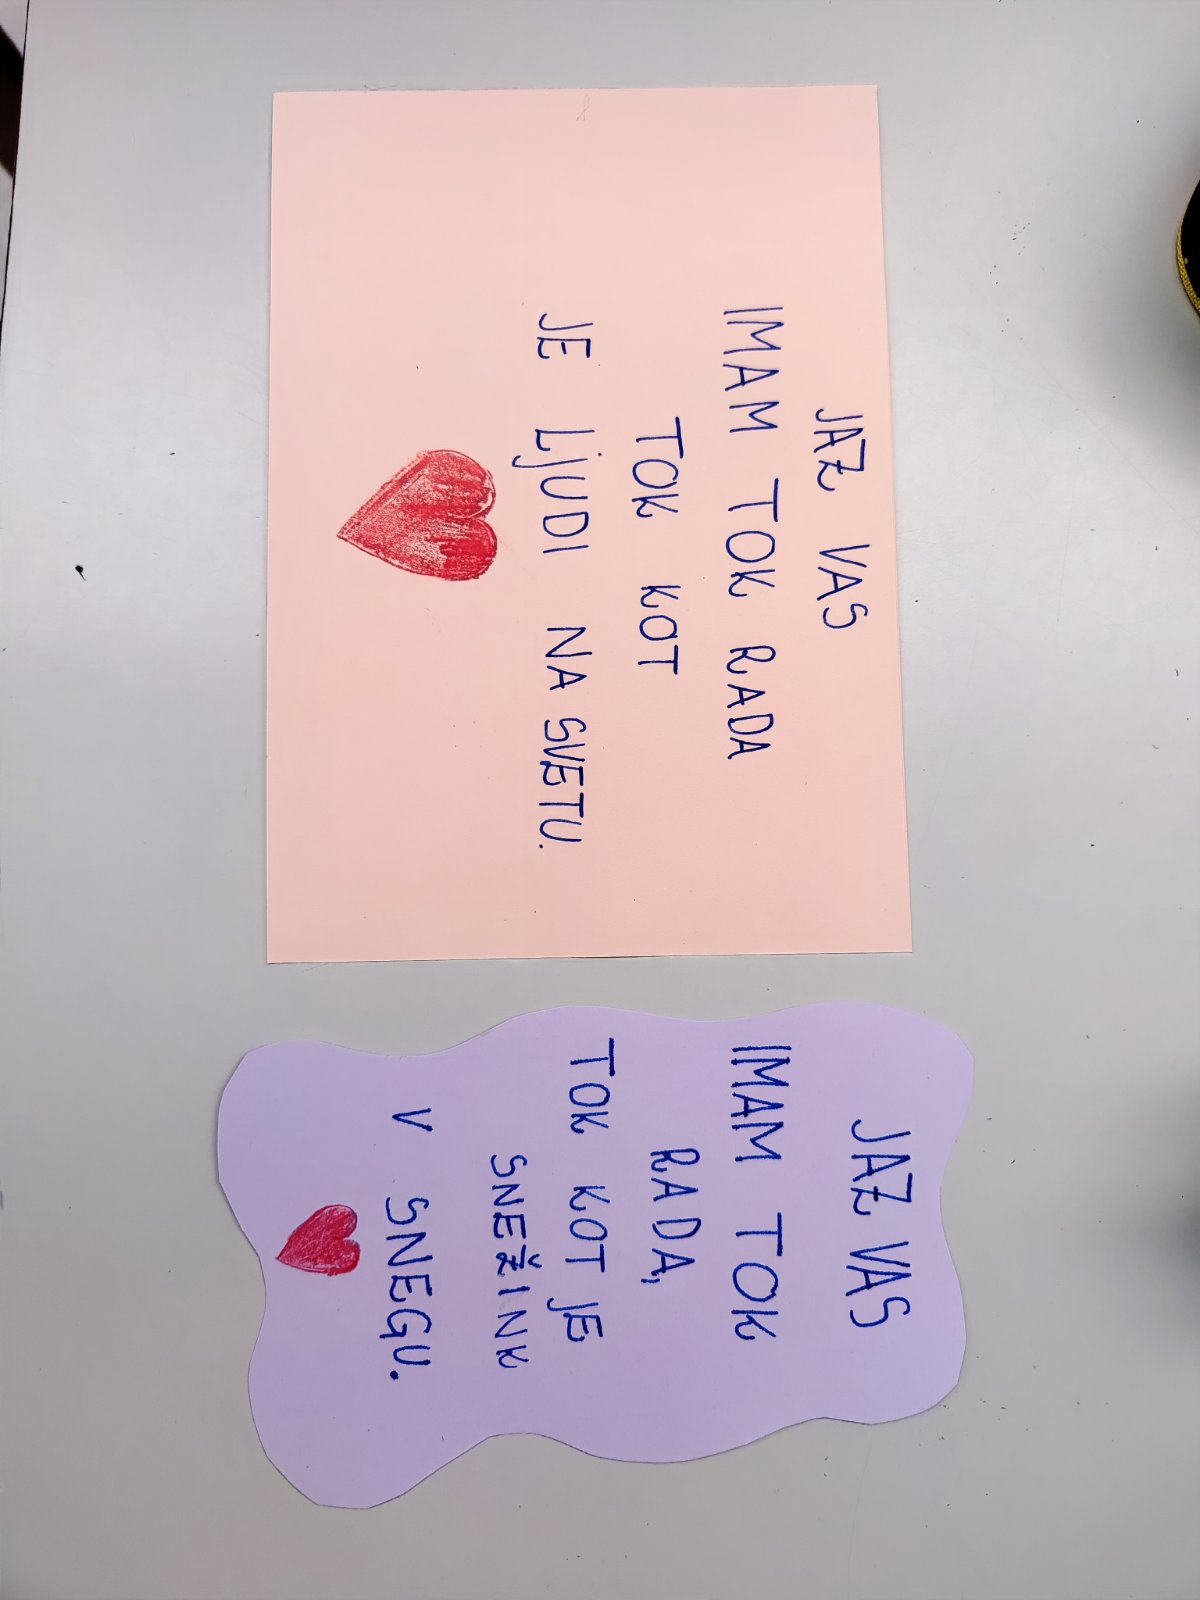 JAZ VAS
IMAM TOK RADA
TOK KOT
JE LJUDI NA SVETU.
JAZ VAS
IMAM TOK
RADA,
TOK KOT JE
SNEŽINK
V SNEGU.